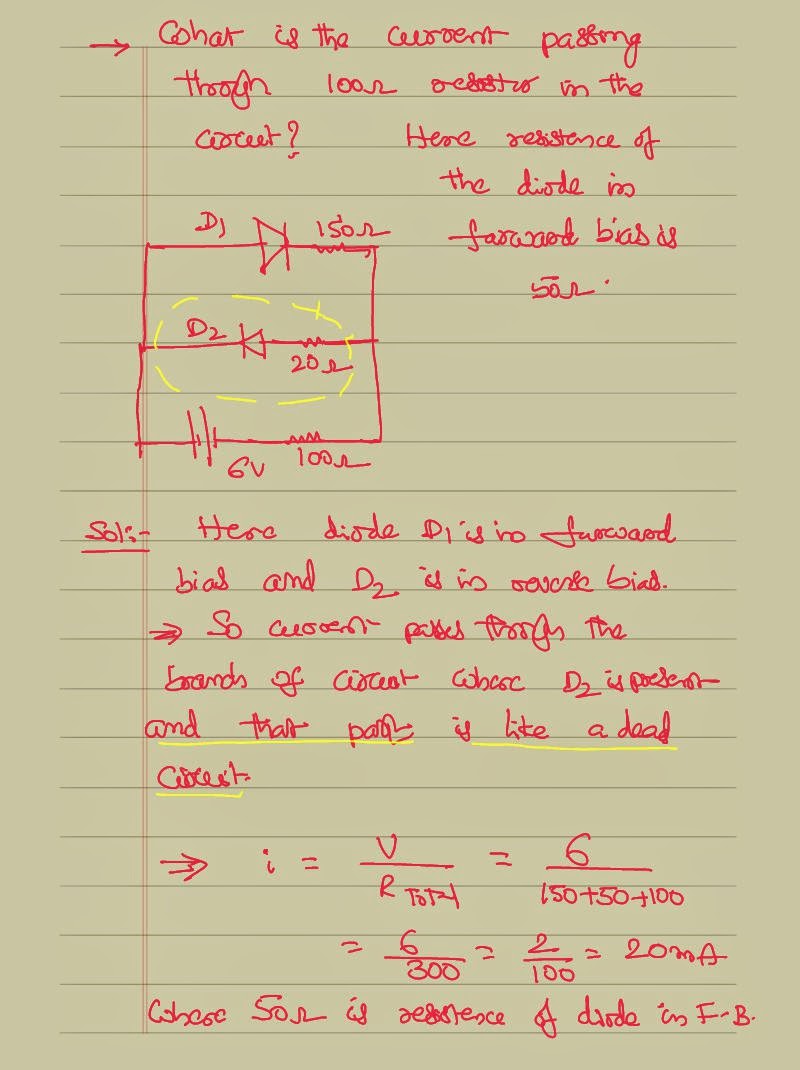 → What is the current passing
through 100Ω resistor in the
circuit? Here resistence of
the diode in
forward bias is
50Ω.
D1 150Ω
D2
20Ω
6V 100Ω
Sol:- Here diode D1 is in forward
bias and D2 is in reverse bias.
⇒ So current passes through the
branch of circuit where D2 is present
and that part is like a dead
circuit.
⇒ i = V / R TOTAL = 6 / 150+50+100
= 6 / 300 = 2 / 100 = 20mA
Where 50Ω is resistence of diode in F-B.